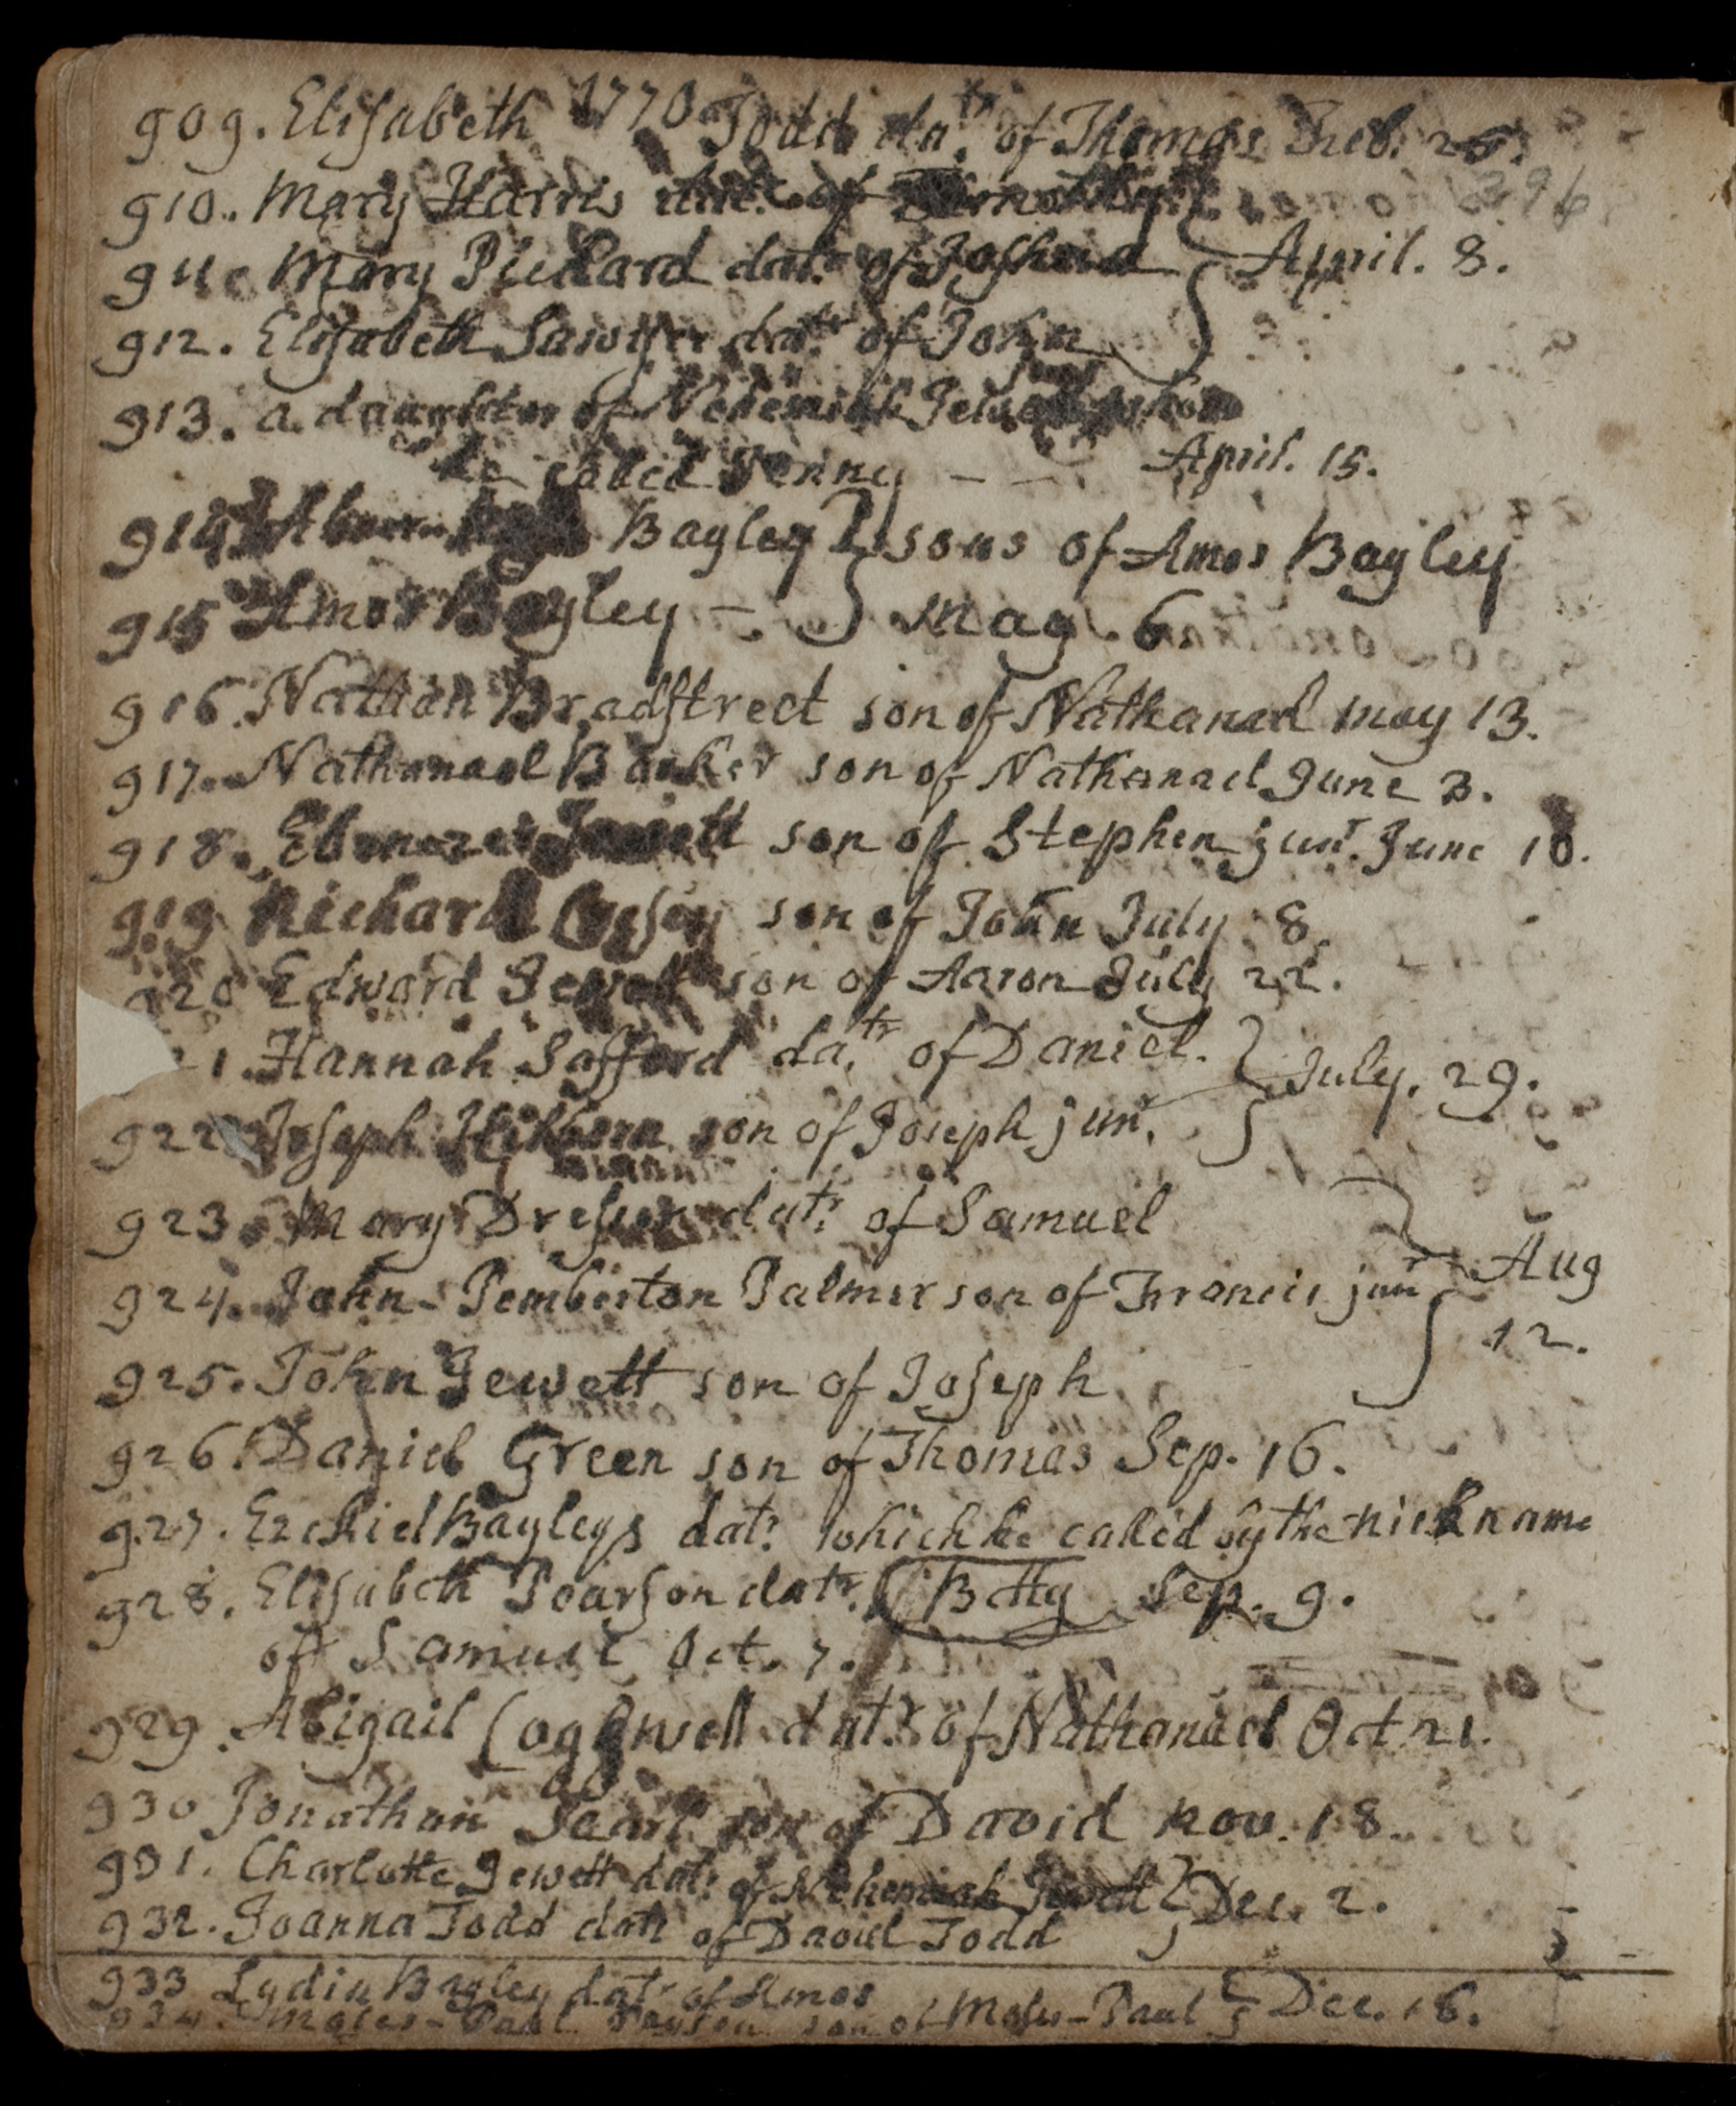 1770
909. Elisabeth Todd datr. of Thomas Feb. 25.
910. Mary Harris datr. of Timothy
911. Mary Pickard datr. of Joshua } April. 8.
912. Elisabeth Sawyer datr. of John
913. a daughter of Nehemiah Jewett
he called Jenny – – April. 15.
914. Abner Bagley } sons of Amos Bagley
915 Amos Bagley – . } may. 6
916. Nathan Bradstreet son of Nathanael may 13.
917. Nathanael Barker son of Nathanael June 3.
918. Ebenezer Jewett son of Stephen junr. June 10.
919 Richard son of John July 8.
920 Edward Jewett son of Aaron July 22.
21. Hannah Safford datr. of Daniel. } July. 29.
922 Joseph son of Joseph jun.
923. Mary Dresser datr. of Samuel
924. John-Pemberton Palmer son of Francis junr } Aug 12.
925. John Jewett son of Joseph
926. Daniel Green son of Thomas Sep. 16.
927. Ezekiel Bayleys datr. which he called by the nickname
928. Elisabeth Pearson datr. (Betty Sep. 9.
of Samuel Oct. 7.
929. Abigail Coggswell datr. of Nathanael Oct 21.
930 Jonathan Searl son of David nov. 18.
931. Charlotte Jewett datr. of Nehemiah Jewett } Dec. 2.
932. Joanna Todd datr of David Todd
933 Lydia Bagley datr of Amos
934. Moses-Paul Payson son of Moses-Paul } Dec. 16.